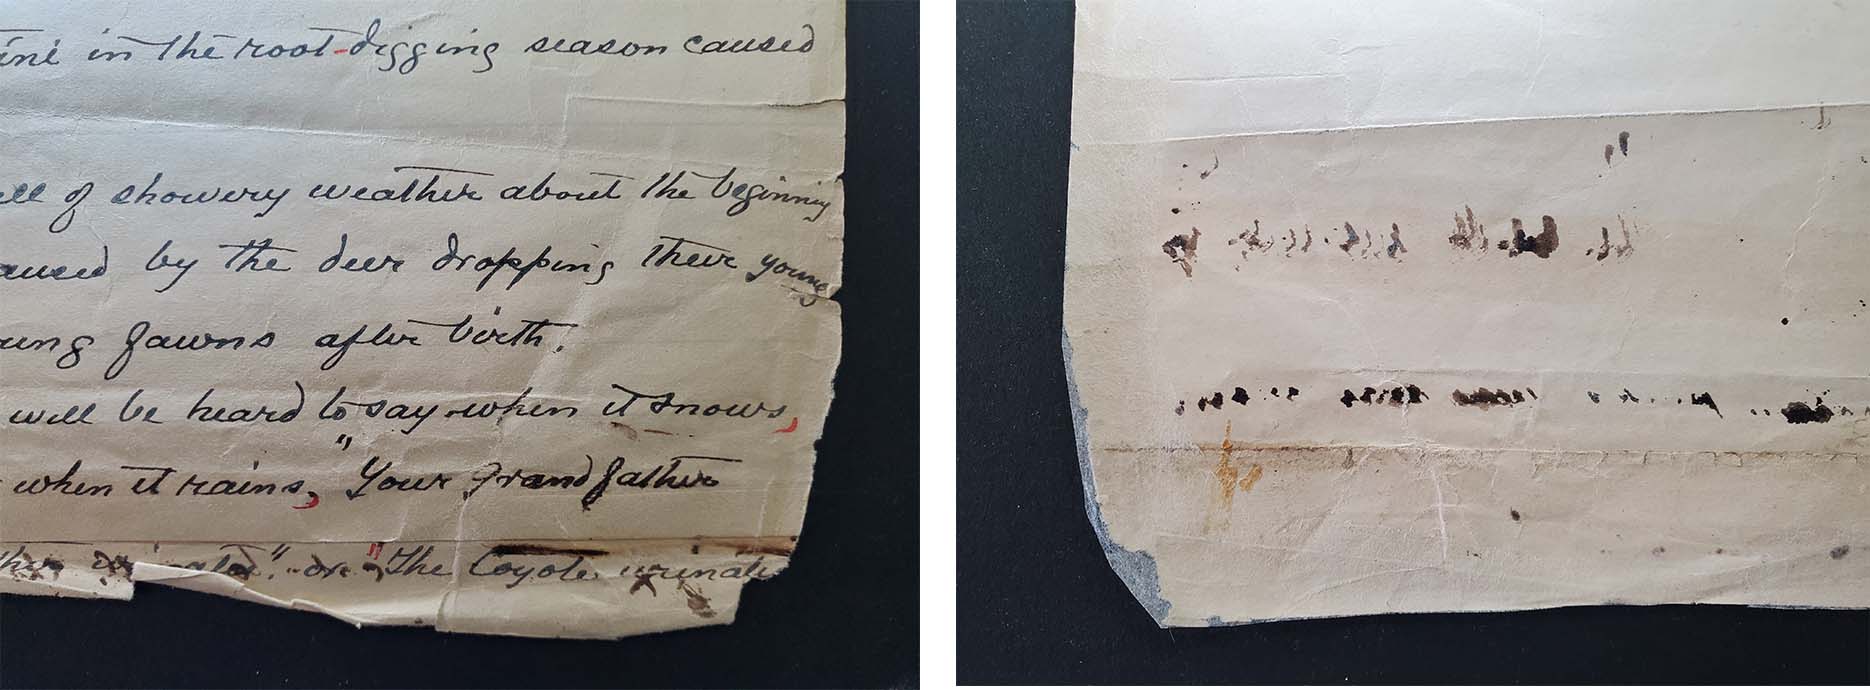 in the root-digging season caused
of showery weather about the beginning
by the deer dropping their young
fawns after birth.
will be heard to say when it snows,
when it rains, "Your Grandfather
" or "The Coyote urinate